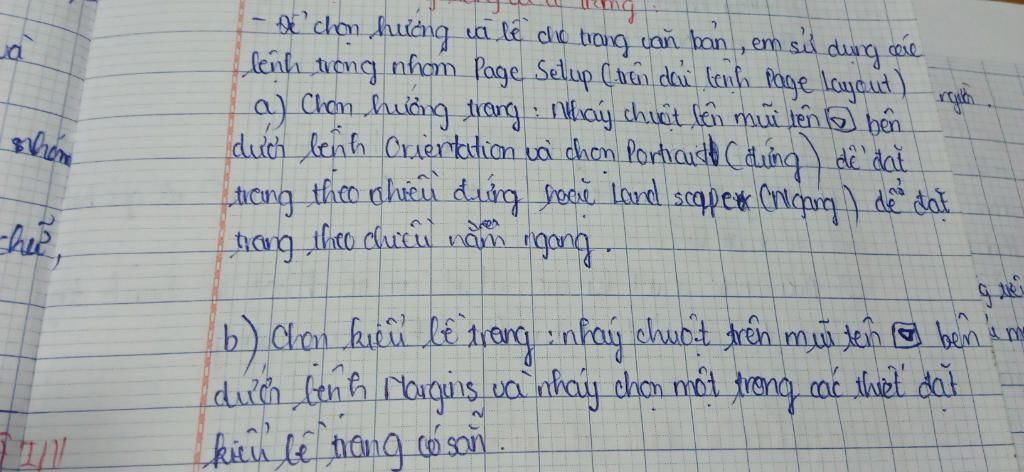 trang.
- Để chọn hướng và lề cho trang văn bản, em sử dụng các
và
lệnh trong nhóm Page Setup (trên dải lệnh Page Layout)
a) Chọn hướng trang: Nháy chuột lên mũi tên bên
nhóm
dưới lệnh Orientation và chọn Portrait (đứng) để đặt
trang theo chiều đứng hoặc Land scape (Ngang) để đặt
trang theo chiều nằm ngang.
b) Chọn kiểu lề trang: nháy chuột trên mũi tên bên
dưới lệnh Margins và nháy chọn một trong các thiết đặt
kiểu lề trang có sẵn.